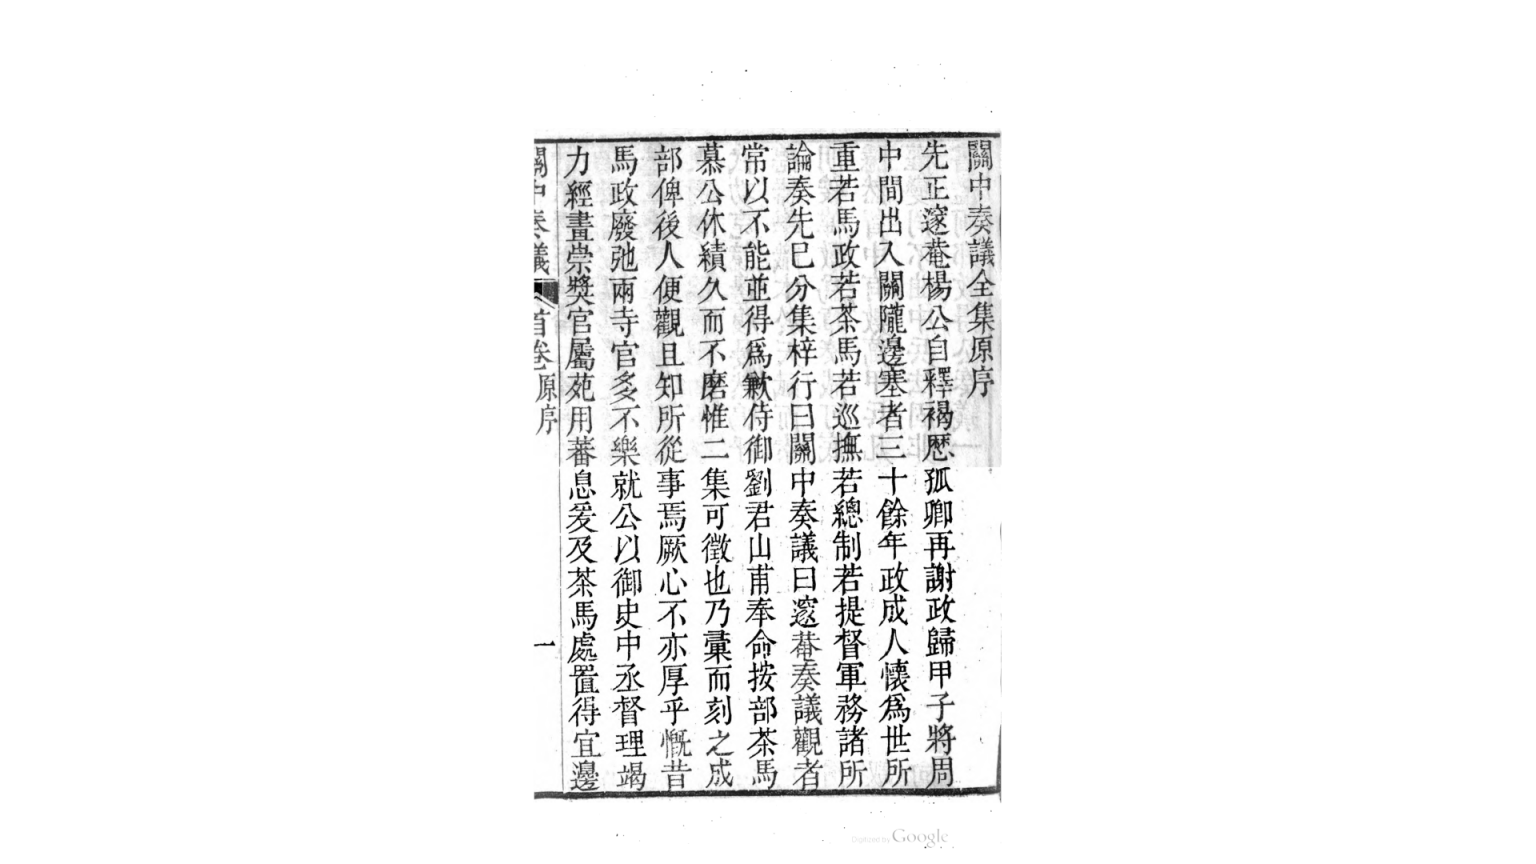 關中奏議全集原序
先正邃菴楊公自釋褐歷孤卿再謝政歸甲子將周
中間出入關隴邊塞者三十餘年政成人懷爲世所
重若馬政若茶馬若巡撫若總制若提督軍務諸所
論奏先巳分集梓行曰關中奏議曰邃菴奏議觀者
常以不能並得爲歉侍御劉君山甫奉命按部茶馬
慕公休績久而不磨惟二集可徵也乃彙而刻之成
部俾後人便觀且知所從事焉厥心不亦厚乎慨昔
馬政廢弛兩寺官多不樂就公以御史中丞督理竭
力經畫崇奬官屬苑用蕃息爰及茶馬處置得宜邊
關中奏議 首卷 原序 一
Digitized by Google